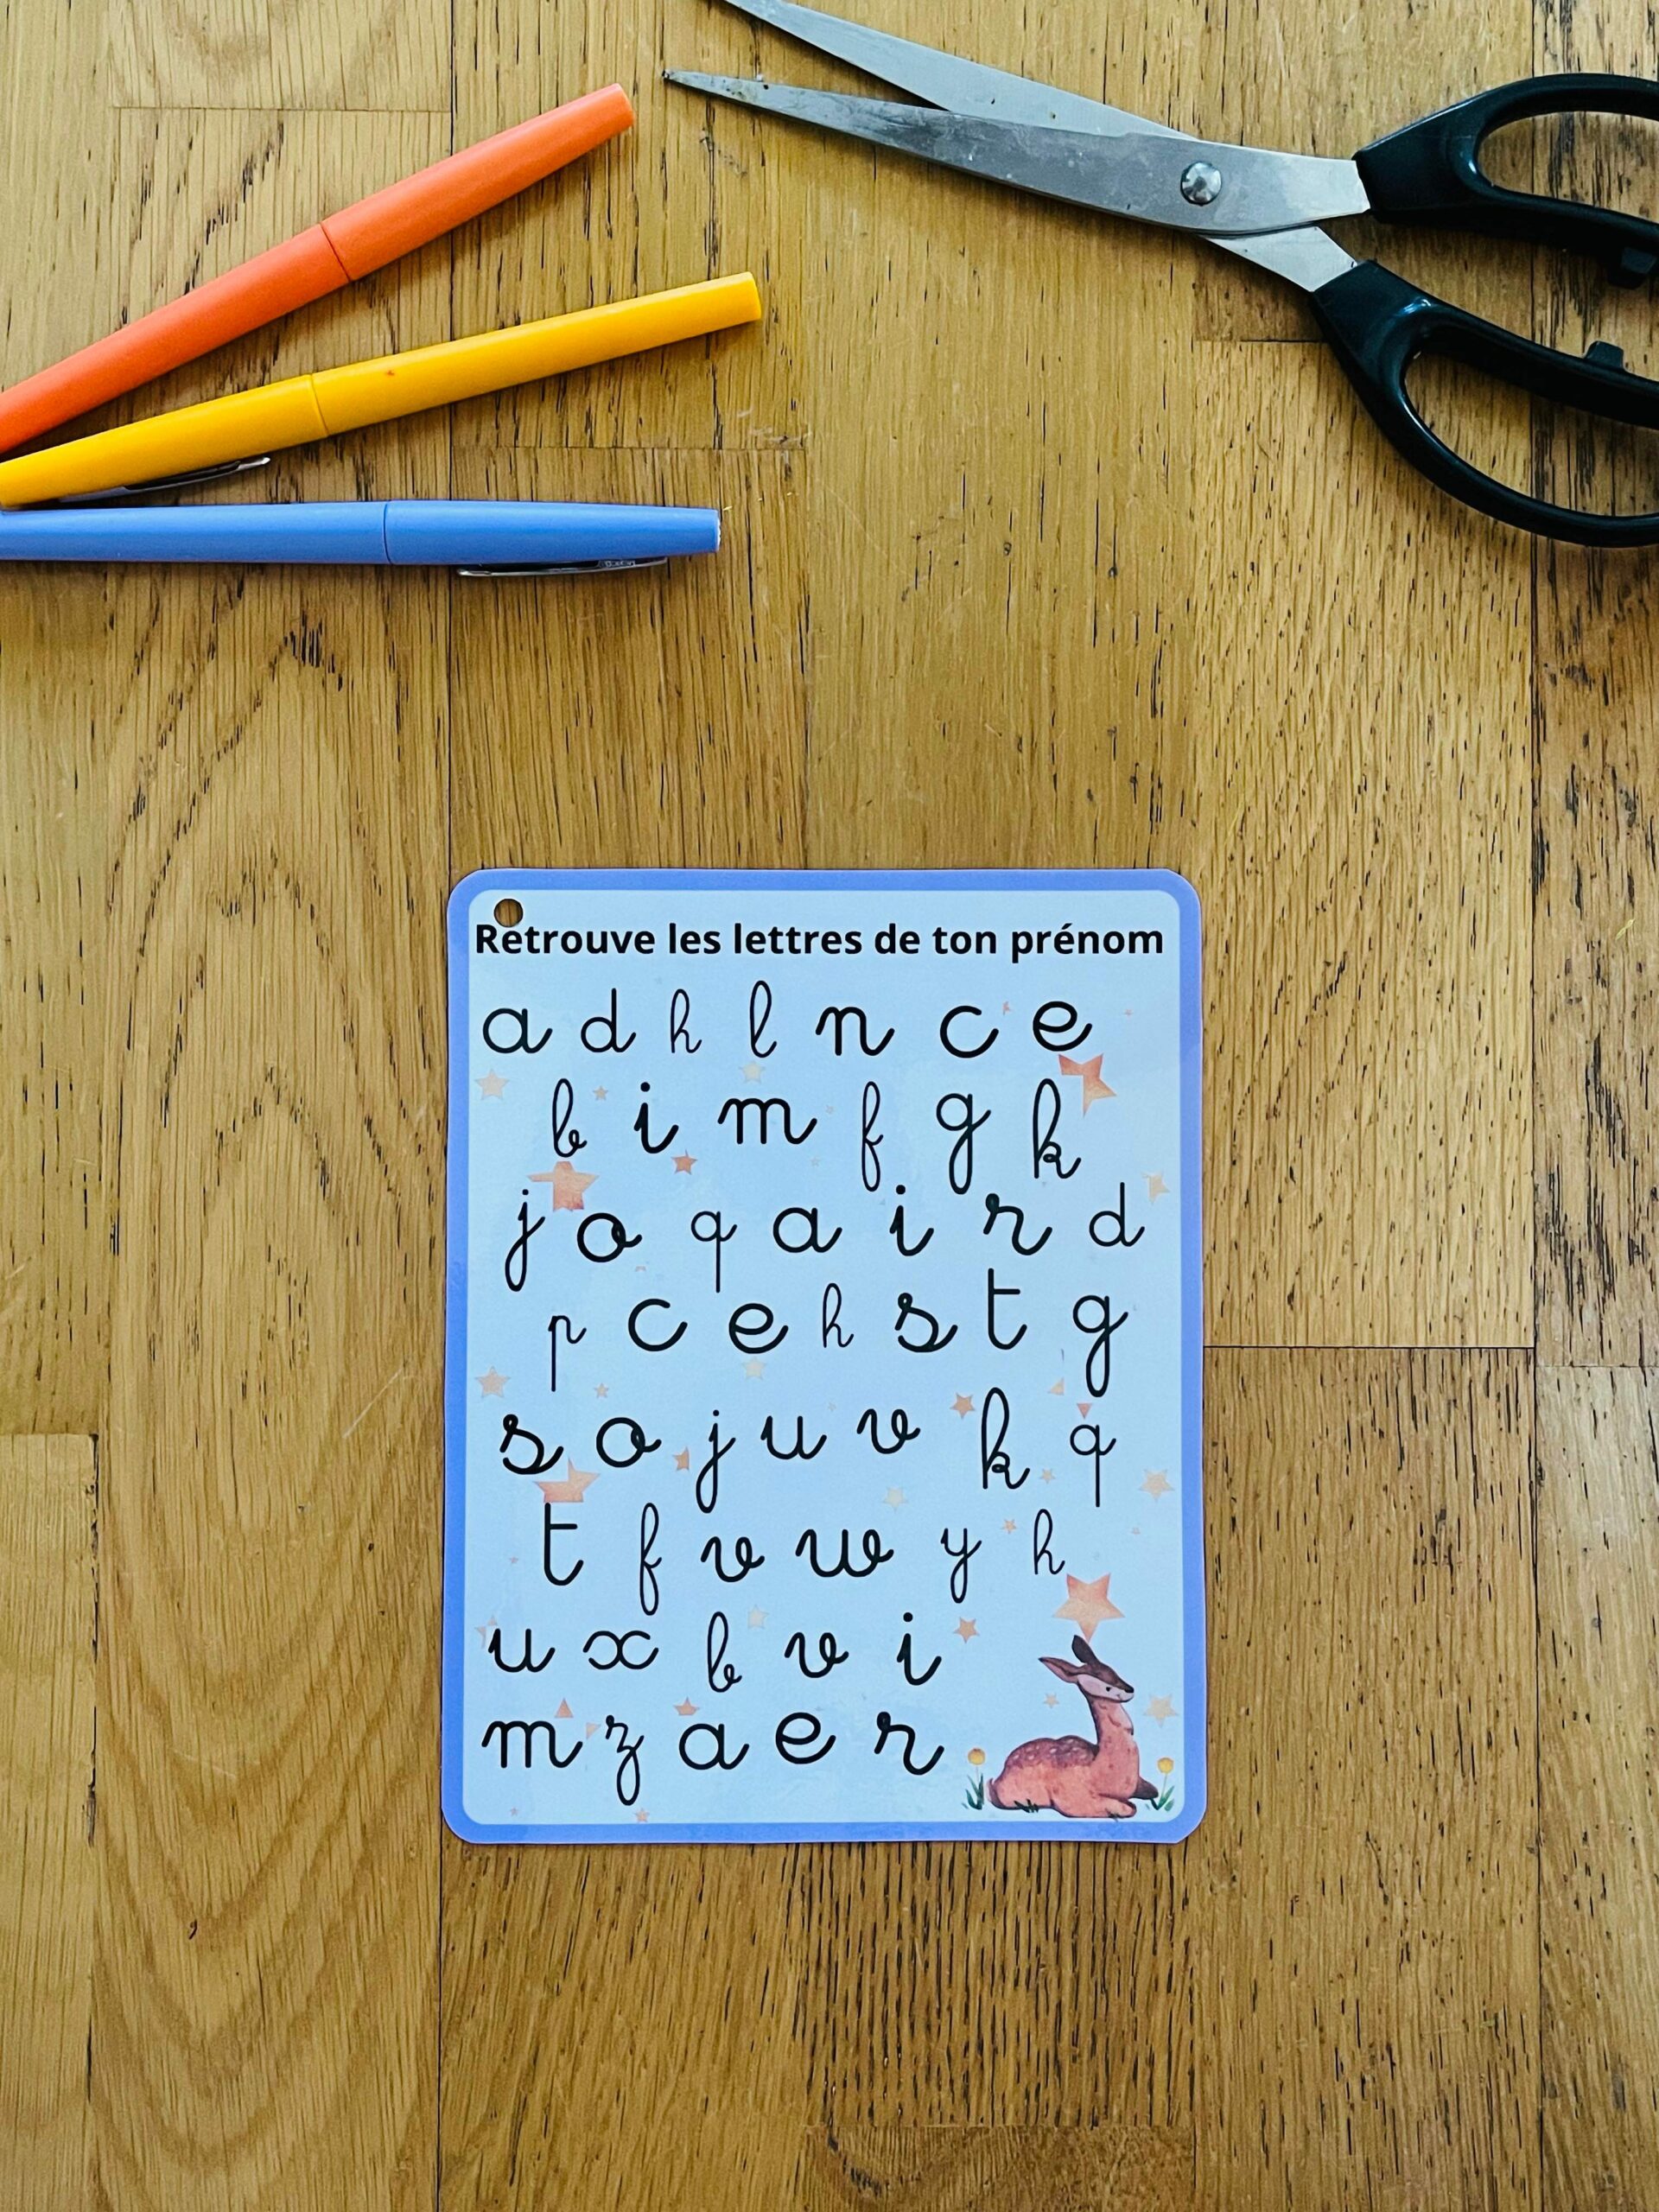 Retrouve les lettres de ton prénom
a d h l n c e
b i m f g k
j o q a i r d
p c e h s t g
s o j u v k q
t f v w y h
u x b v i
m z a e r